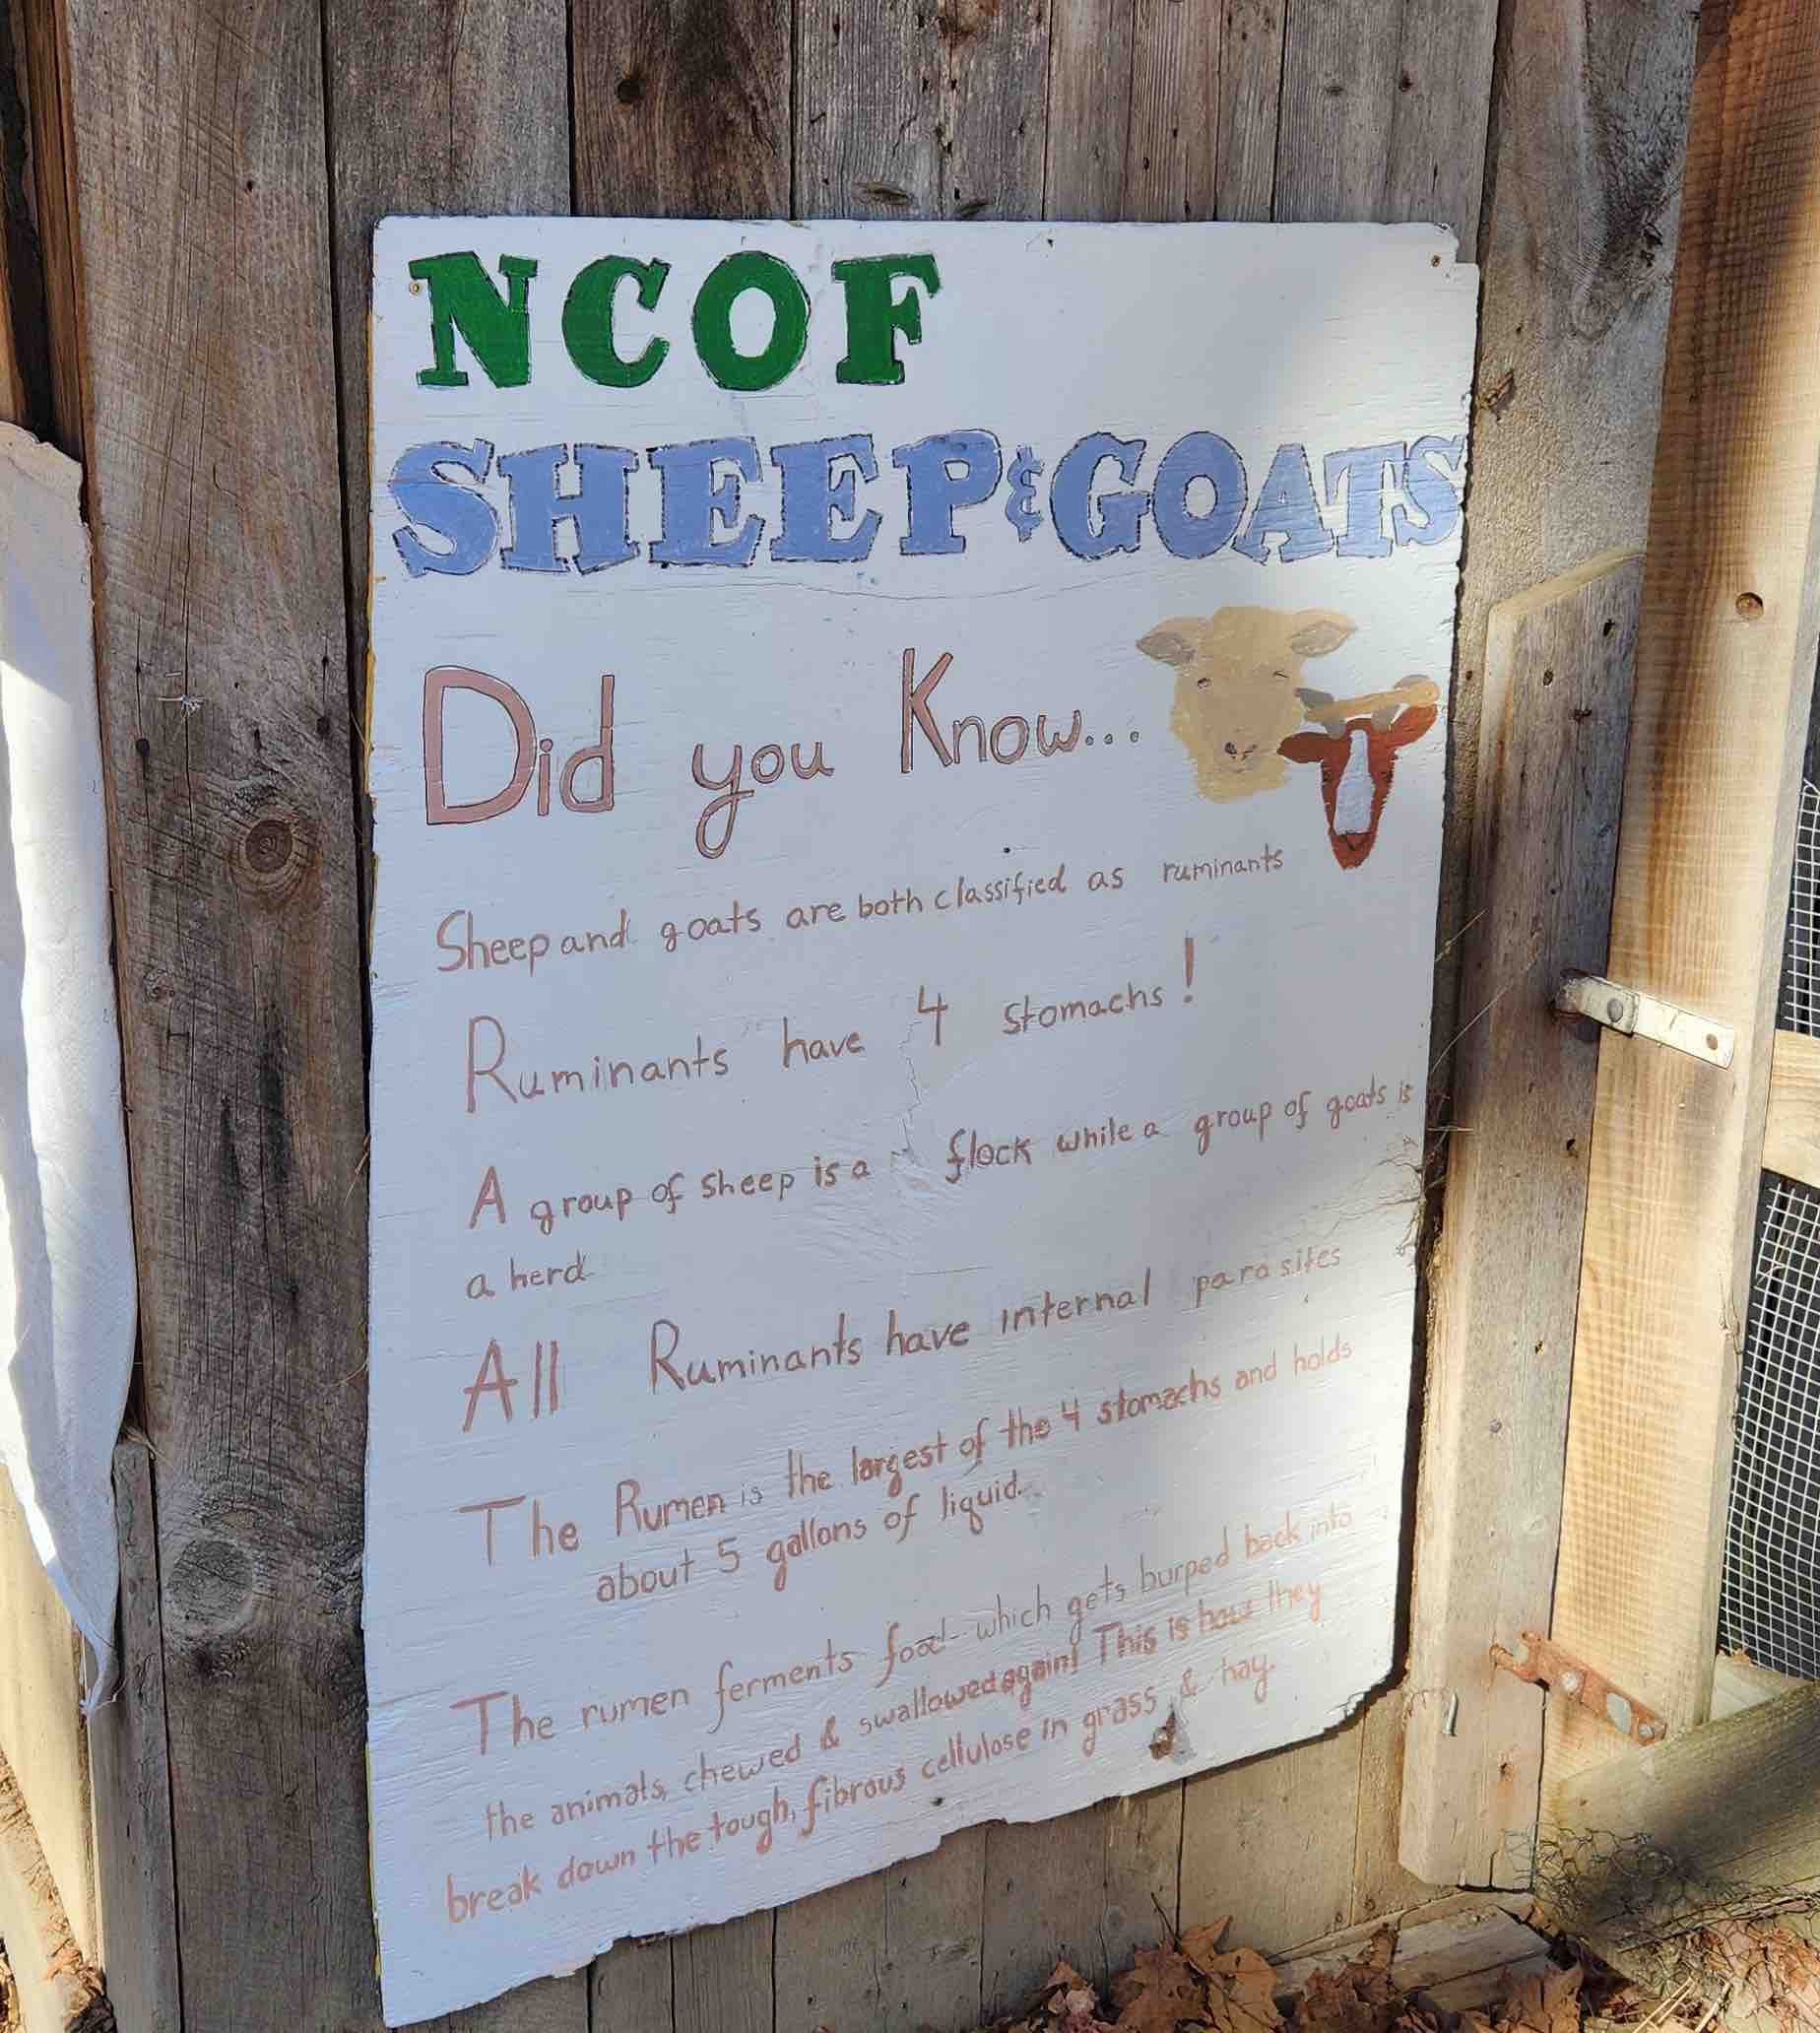 NCOF
SHEEP & GOATS
Did you Know...
Sheep and goats are both classified as ruminants
Ruminants have 4 stomachs!
A group of sheep is a flock while a group of goats is
a herd
All Ruminants have internal parasites
The Rumen is the largest of the 4 stomachs and holds
about 5 gallons of liquid.
The rumen ferments food which gets burped back into
the animals, chewed & swallowed again! This is how they
break down the tough, fibrous cellulose in grass & hay.